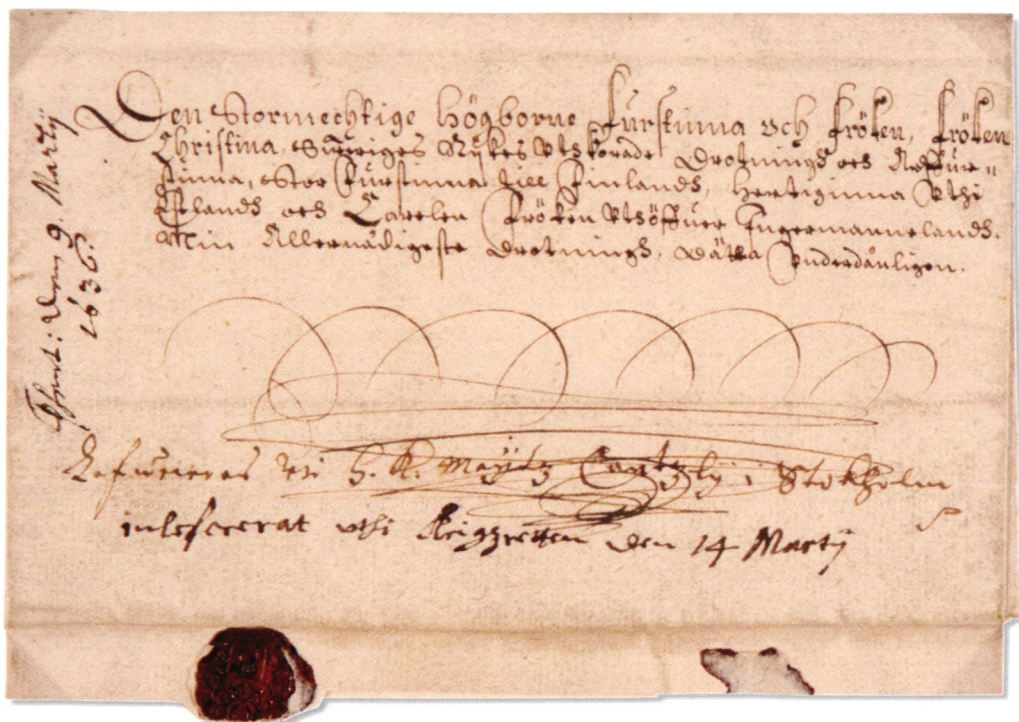 Den Stormechtige Högborne Furstinna och Fröken, Fröken
Christina, Sweriges Rykes Vtkorade Drotningh och Arffur=
stinna, Stor Furstinna till Finlandh, Hertiginna Vthi
Estlandh och Carelen Fröken Vthöffuer Ingermannelandh.
Min Allernådigeste Drotningh, Dätta Underdånligen.
vthi H. K. Maÿtz Cantzlÿ i Stokholm
vthi Krigzretten den 14 Martÿ
den 9. Martÿ
1636.